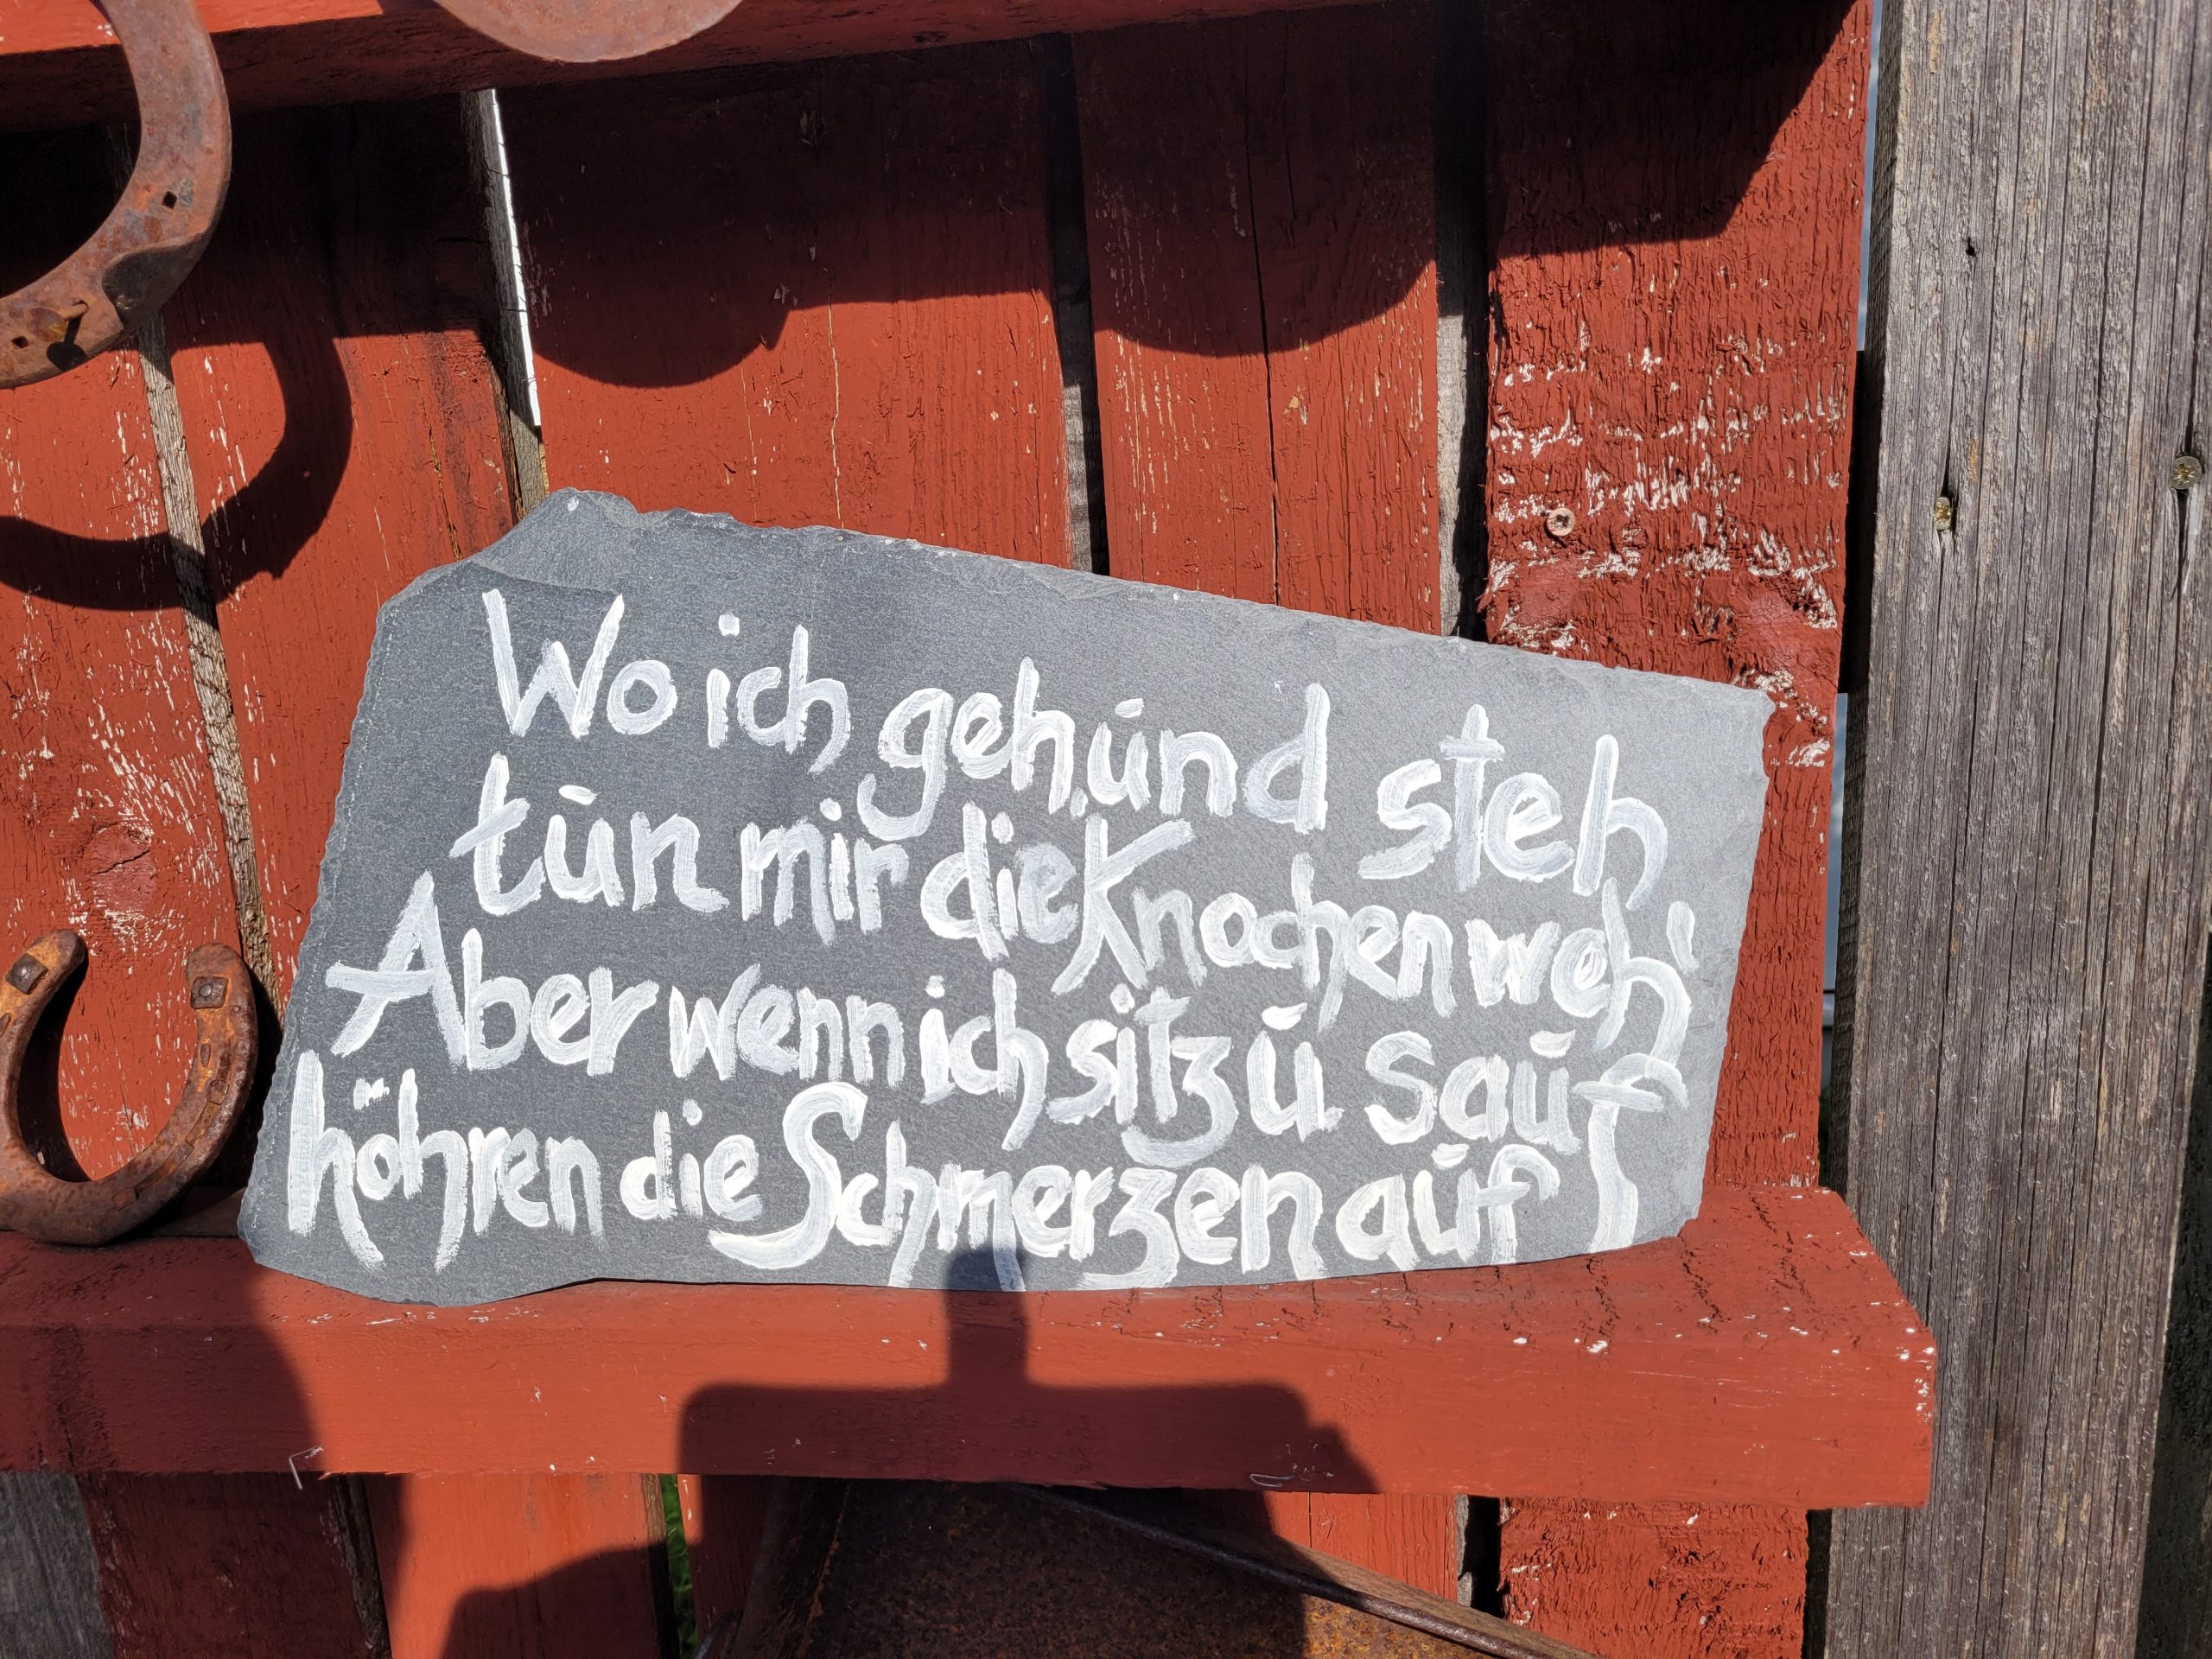 Wo ich geh, und steh
tun mir die Knochen weh'
Aber wenn ich sitz u sauf
höhren die Schmerzen auf